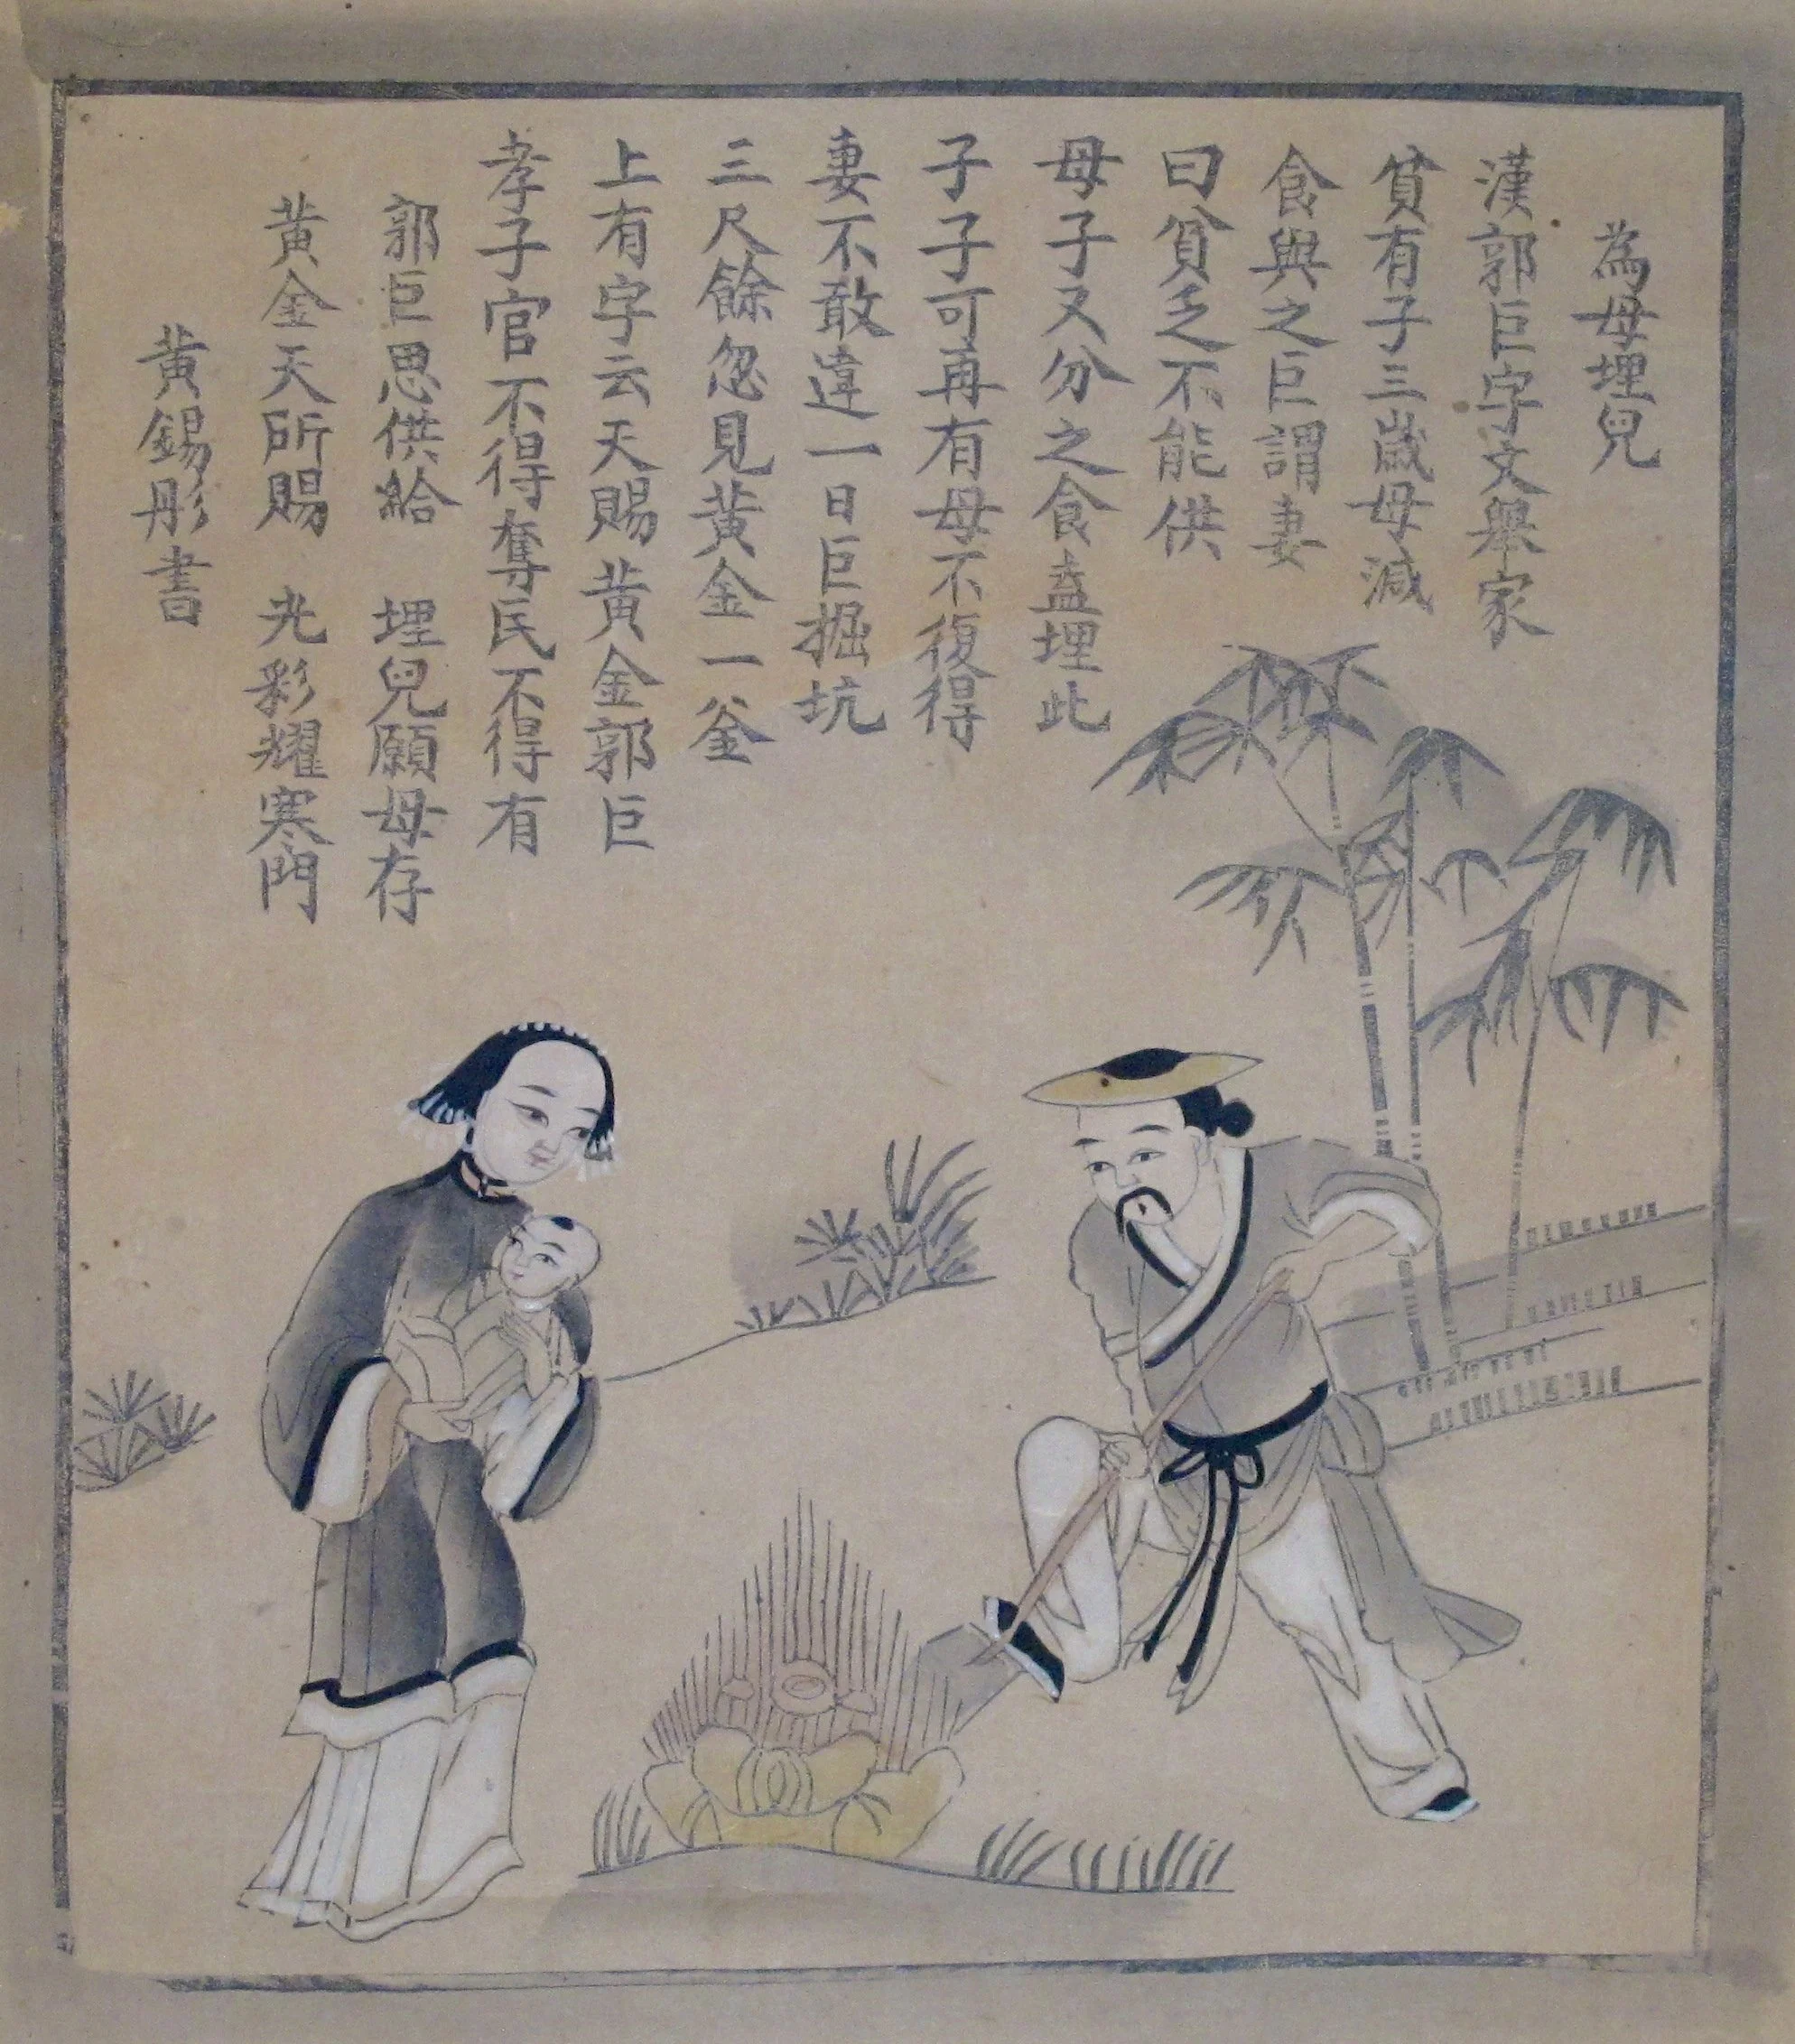 為母埋兒
漢郭巨字文舉家
貧有子三歲母減
食與之巨謂妻
曰貧乏不能供
母子又分之食盍埋此
子子可再有母不復得
妻不敢違一日巨掘坑
三尺餘忽見黃金一釜
上有字云天賜黃金郭巨
孝子官不得奪民不得有
郭巨思供給 埋兒願母存
黃金天所賜 光彩耀寒門
黃錫彤書